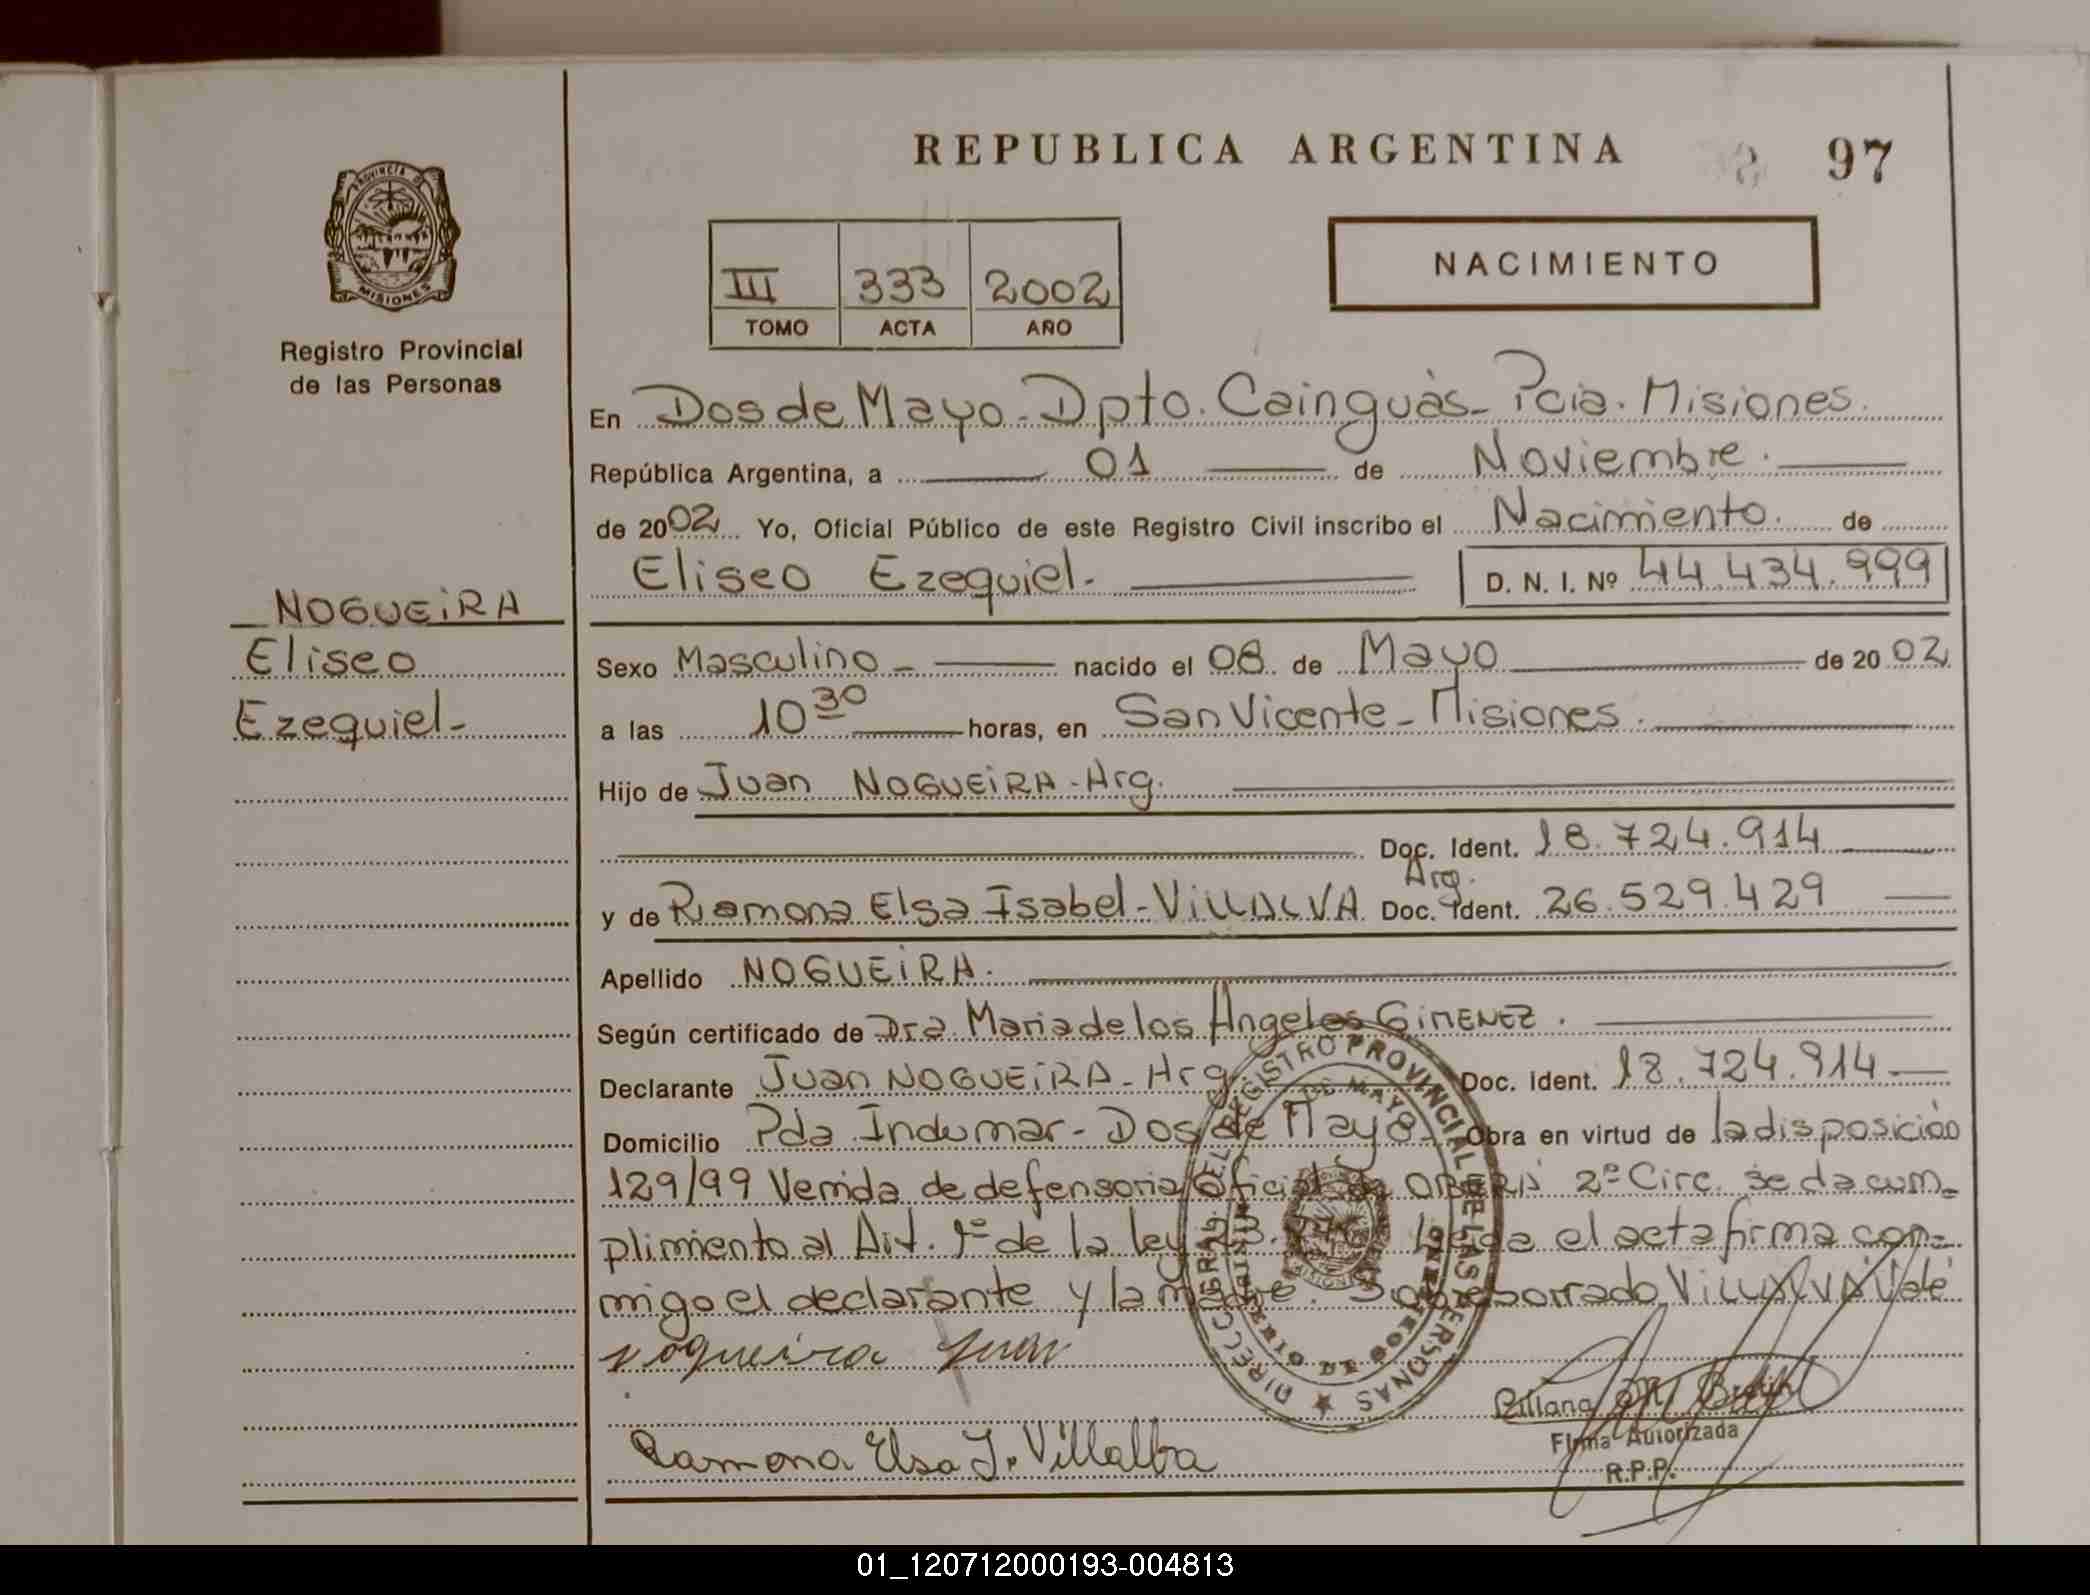 REPUBLICA ARGENTINA
97
PROVINCIA DE
MISIONES
Registro Provincial
de las Personas
III 333 2002
TOMO ACTA AÑO
NACIMIENTO
En Dos de Mayo - Dpto. Cainguàs - Pcia. Misiones.
República Argentina, a 01 de Noviembre.
de 2002 Yo, Oficial Público de este Registro Civil inscribo el Nacimiento. de
Eliseo Ezequiel. D. N. I. Nº 44.434.999
NOGUEiRA
Eliseo
Ezequiel-
Sexo Masculino - nacido el 08 de Mayo de 2002
a las 10 30 horas, en San Vicente - Misiones.
Hijo de Juan NOGUEiRA - Arg.
Doc. Ident. 18.724.914
Arg.
y de Ramona Elsa Isabel - ViLLALVA Doc. Ident. 26.529.429
Apellido NOGUEiRA.
Según certificado de Dra. Maria de los Angeles GiMENEZ.
Declarante Juan NOGUEiRA - Arg. Doc. Ident. 18.724.914
Domicilio Pda Indumar - Dos de Mayo - Obra en virtud de la disposición
129/99 Venida de defensoria Oficial de OBERA 2º Circ. se da cum=
plimiento al Art. 1º de la ley 23. el acta firma con=
migo el declarante y la madre. Sobreborrado ViLLALVA Vale
nogueira juan
Ramona Elsa I. Villalba
Firma Autorizada
R.P.P.
REGISTRO PROVINCIAL DE LAS PERSONAS
DE MAYO
MISIONES
01_120712000193-004813